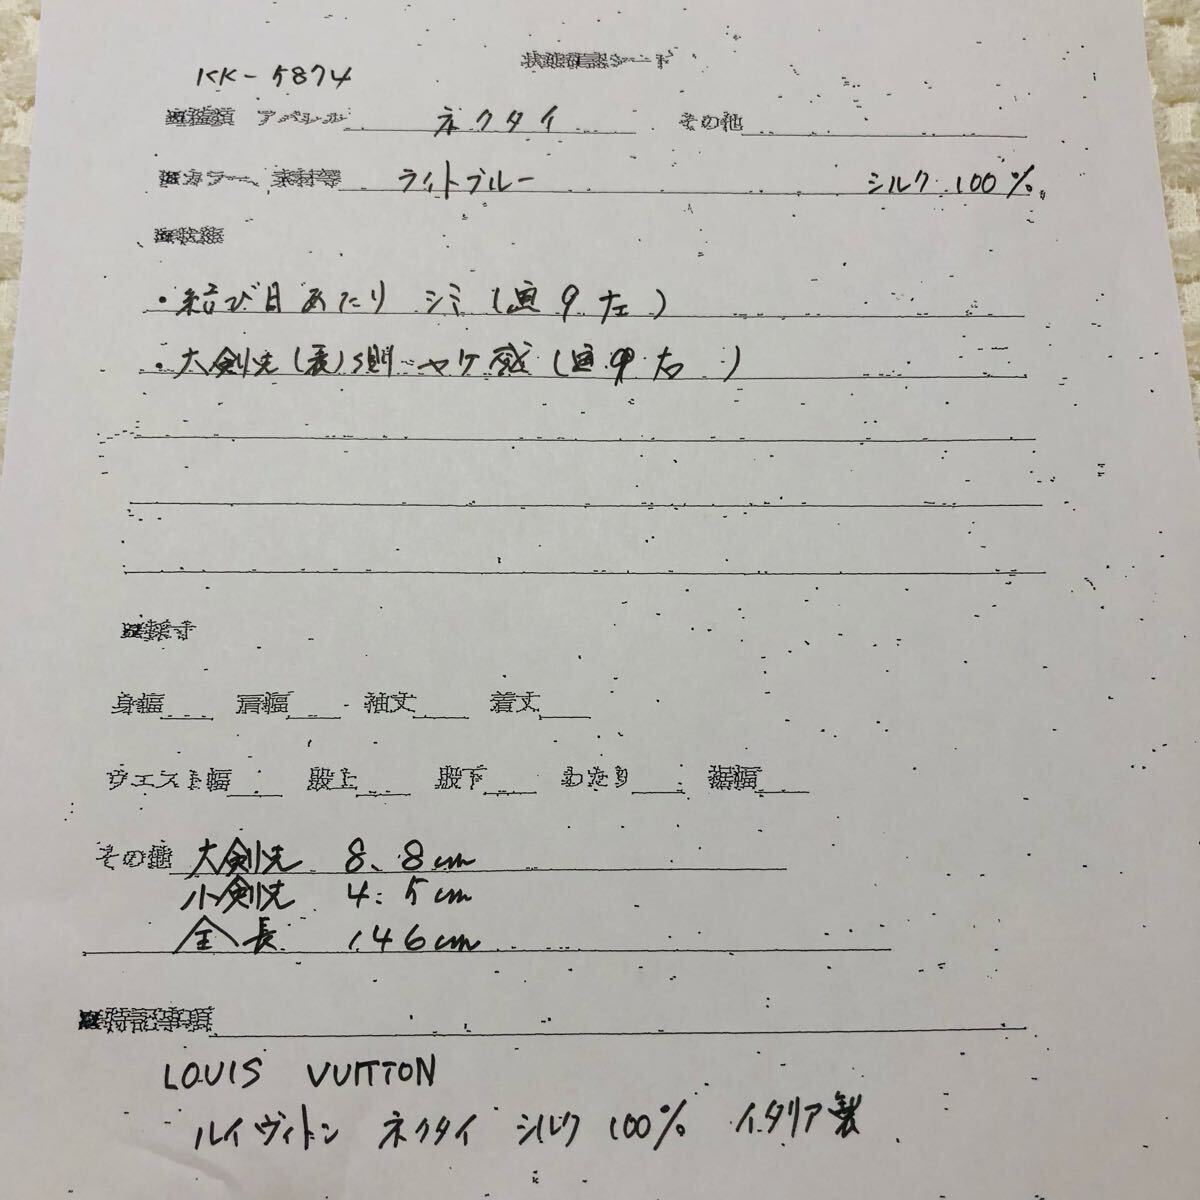 状態確認シート
KK-5874
■種類 アパレル ネクタイ その他
■カラー、素材等 ライトブルー シルク 100%
■状態
・結び目あたり シミ(画9左)
・大剣先(裏)側 ヤケ感(画9右)
■採寸
身幅 肩幅 袖丈 着丈
ウエスト幅 股上 股下 わたり 裾幅
その他 大剣先 8.8cm
小剣先 4.5cm
全長 146cm
■特記事項
LOUIS VUITTON
ルイヴィトン ネクタイ シルク 100% イタリア製